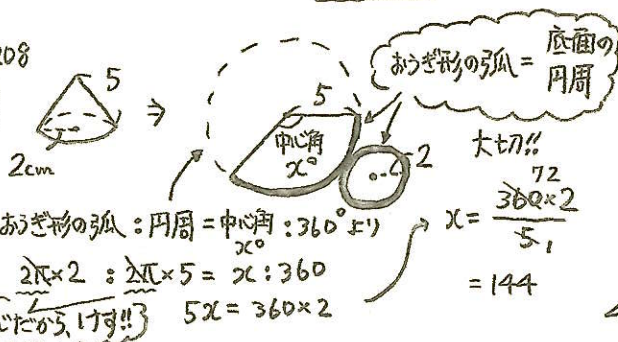 208
5
2cm
⇒
5
中心角
x°
2
おうぎ形の弧 = 底面の円周
大切!!
おうぎ形の弧 : 円周 = 中心角 : 360° より
x°
2π×2 : 2π×5 = x : 360
じだから、けす!!
5x = 360×2
72
x = 360×2 / 5 1
= 144